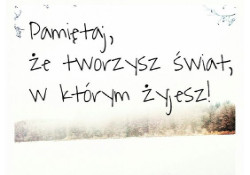 Pamiętaj,
że tworzysz świat,
w którym żyjesz!